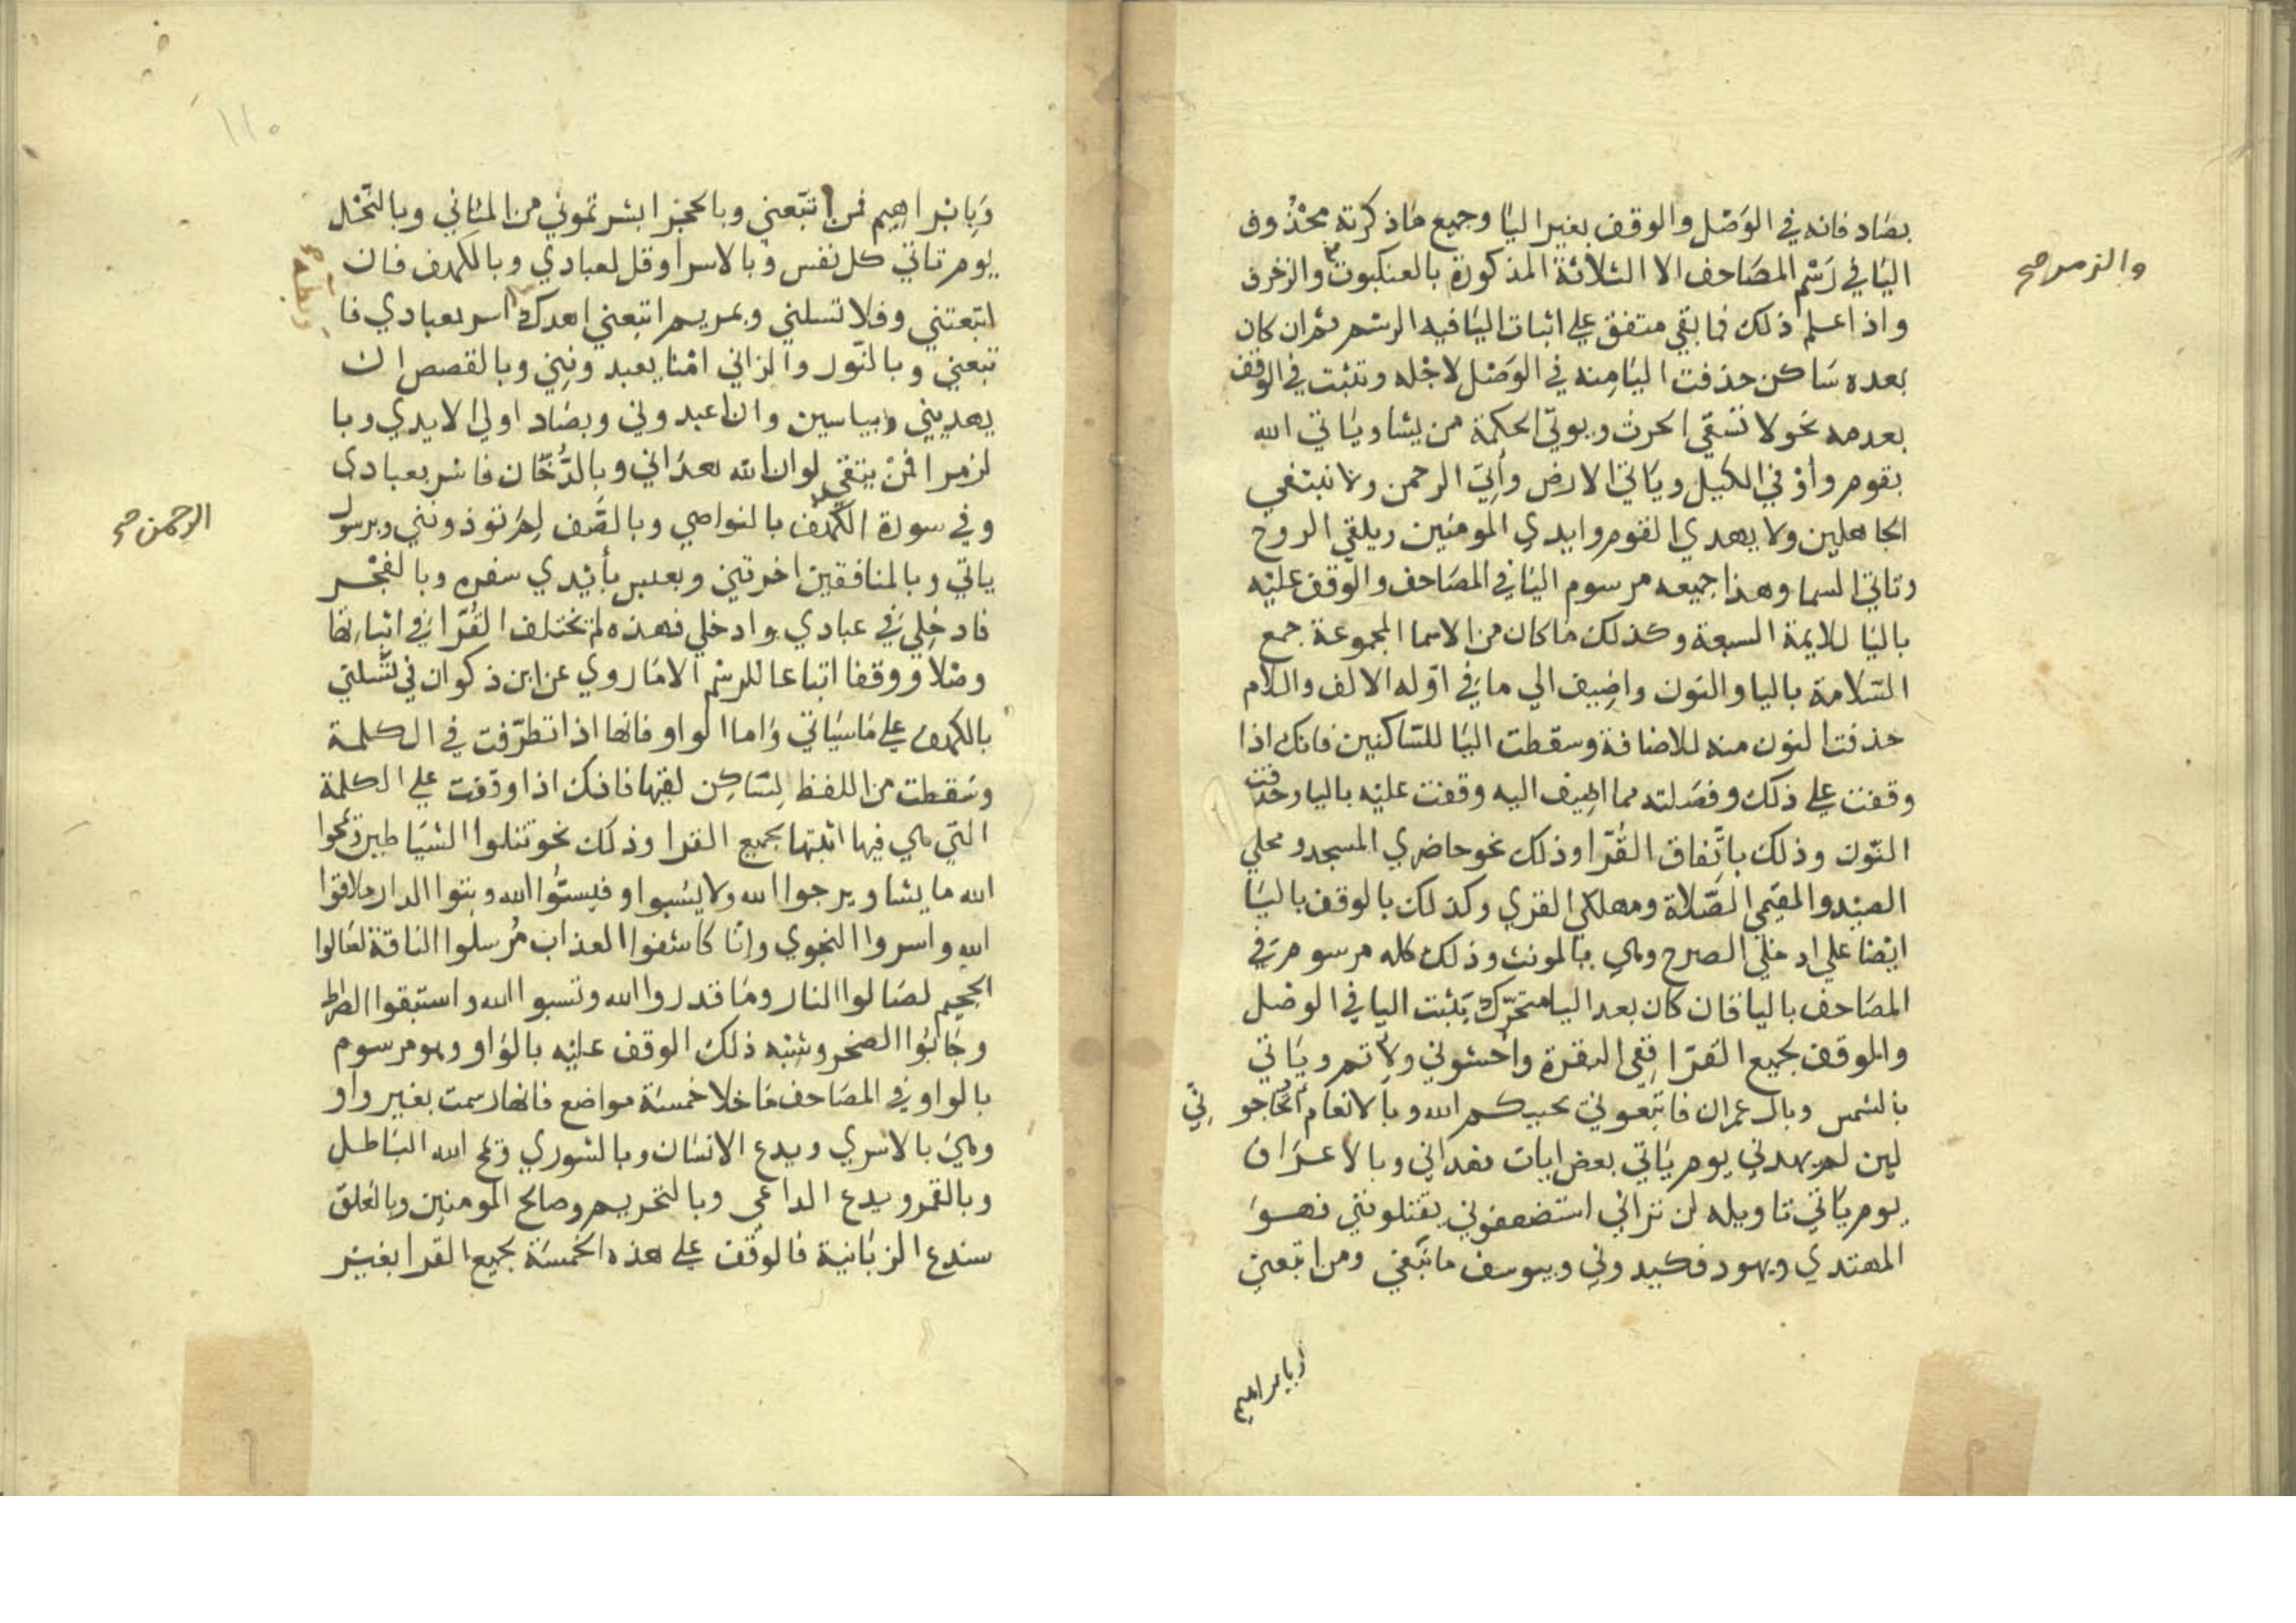 بصاد فانه في الوصل والوقف بغير اليا وجميع ماذكرته محذوف
اليا في رسم المصاحف الا الثلاثة المذكورة بالعنكبوت والزخرف
والزمر صح
واذا علم ذلك فما بقي متفق على اثبات اليا فيه الرسم ثم ان كان
بعده ساكن حذفت اليا منه في الوصل لاجله وتثبت في الوقف
بعدمه نحو لا تسقي الحرث ويوتي الحكمة من يشا وياتي الله
بقوم واوفي الكيل وياتي الارض واتي الرحمن ولا نبتغي
الجاهلين ولا يهدي القوم وايدي المومنين ويلقي الروح
وتاتي السما وهذا جميعه مرسوم اليا في المصاحف والوقف عليه
باليا للايمة السبعة وكذلك ما كان من الاسما المجموعة جمع
السلامة باليا والنون واضيف الي ما في اوله الالف واللام
حذفت النون منه للاضافة وسقطت اليا للساكنين فانك اذا
وقفت على ذلك وفصلته مما اضيف اليه وقفت عليه باليا وحذفت
النون وذلك باتفاق القرا وذلك نحو حاضري المسجد ومحلي
الصيد والمقيمي الصلاة ومهلكي القري وكذلك بالوقف باليا
ايضا على ادخلي الصرح وهي يا المونث وذلك كله مرسوم في
المصاحف باليا فان كان بعد اليا متحرك يثبت اليا في الوصل
والوقف لجميع القرا ففي البقرة واخشوني ولاتم وياتي
بالشمس وبال عمران فاتبعوني يحببكم الله وبالانعام اتحاجوني
لين لم يهدني يوم ياتي بعض ايات هداني وبالاعراف
يوم ياتي تاويله لن تراني استضعفوني يقتلونني فهو
المهتدي وبهود فكيدوني وبيوسف ما نبغي ومن اتبعني
وبابراهيم
١١٠
وبابراهيم فمن اتبعني وبالحجر ابشرتموني من المثاني وبالنحل
يوم تاتي كل نفس وبالاسرا وقل لعبادي وبالكهف فان
اتبعتني وفلا تسلني وبمريم اتبعني اهدك اسر بعبادي فا
تبعني وبالنور والزاني امنا يعبدونني وبالقصص ان
يهديني وبياسين وان اعبدوني وبصاد اولي الايدي وبا
لزمر افمن يتقي لو ان الله هداني وبالدخان فاسر بعبادي
وفي سورة بالنواصي وبالصف لم توذونني وبرسول
الرحمن صح
ياتي وبالمنافقين اخرتني وبعبس بأيدي سفره وبالفجر
فادخلي في عبادي وادخلي فهذه لم تختلف القرا في اثباتها
وصلا ووقفا اتباعا للرسم الا ما روي عن ابن ذكوان في تسلني
بالكهف على ما سياتي واما الواو فانها اذا تطرفت في الكلمة
وسقطت من اللفظ لساكن لقيها فانك اذا وقفت على الكلمة
التي هي فيها اثبتها لجميع القرا وذلك نحو تتلوا الشياطين ويمحوا
الله ما يشا ويرجوا الله ولا يسبوا وفيسبوا الله وتبوا الدار وملاقوا
الله واسروا النجوي وإنا كاشفوا العذاب مرسلوا الناقة لصالوا
الجحيم لصالوا النار وما قدروا الله ونسوا الله واستبقوا الصراط
وجابوا الصخر وشبه ذلك الوقف عليه بالواو وهو مرسوم
بالواو في المصاحف ما خلا خمسة مواضع فانها رسمت بغير واو
وهي بالاسري ويدع الانسان وبالشوري ويمح الله الباطل
وبالقمر ويدع الداعي وبالتحريم وصالح المومنين وبالعلق
سندع الزبانية فالوقف على هذه الخمسة لجميع القرا بغير